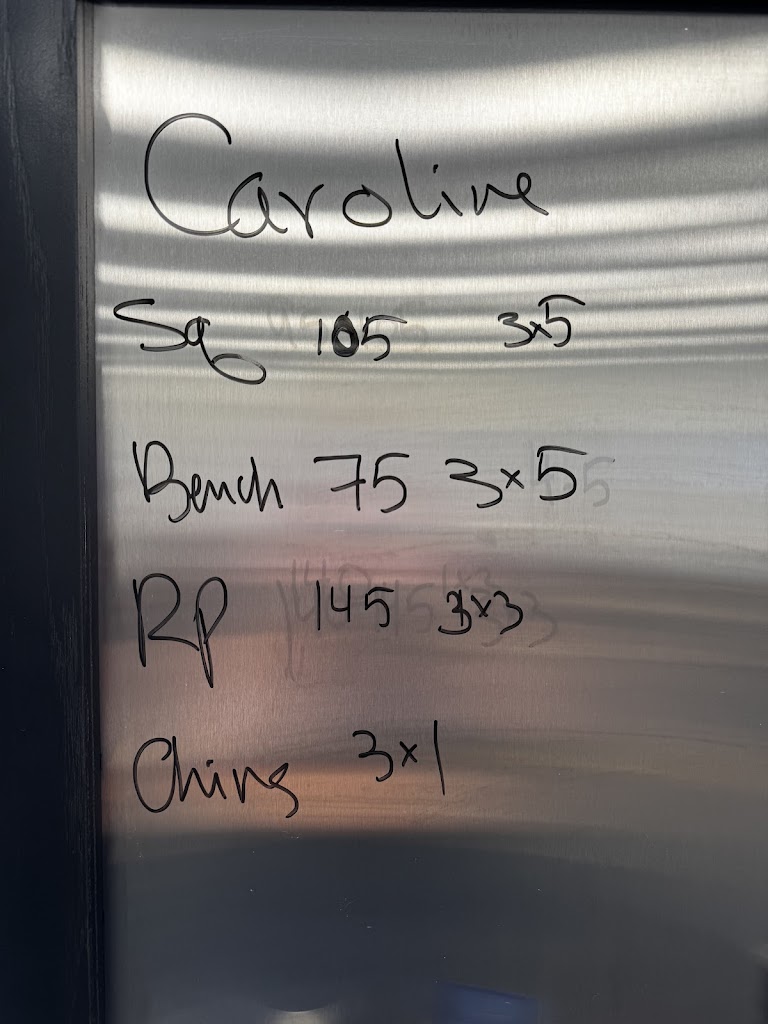 Caroline
Sq 105 3x5
Bench 75 3x5
RP 145 3x3
Chins 3x1